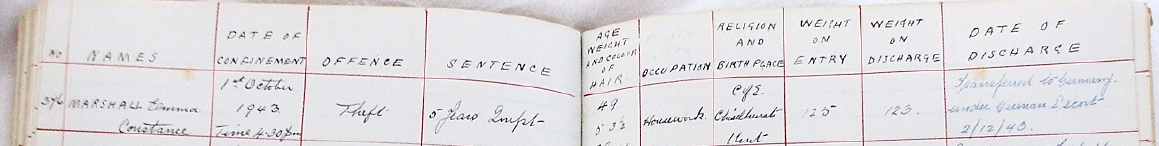 No
NAMES
DATE OF
CONFINEMENT
OFFENCE
SENTENCE
AGE
WEIGHT
AND COLOUR
OF
HAIR.
OCCUPATION
RELIGION
AND
BIRTHPLACE
WEIGHT
ON
ENTRY
WEIGHT
ON
DISCHARGE
DATE OF
DISCHARGE
MARSHALL Emma
Constance
1st October
1943
Time 4.30pm
Theft
5 Years Impt
49
5' 3½
Housework.
C of E.
Chislehurst
Kent
125
123.
Transferred to Germany.
under German Escort
2/12/43.